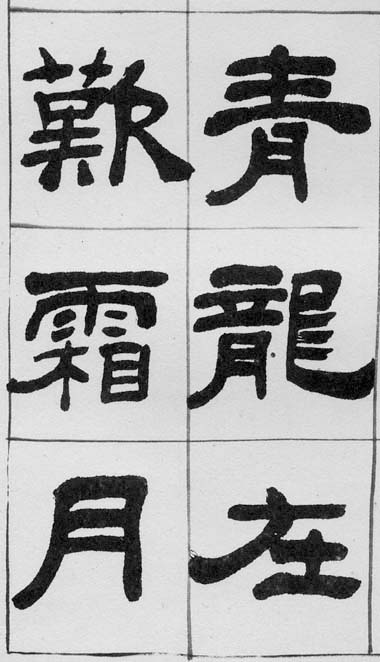 青龍在
歎霜月